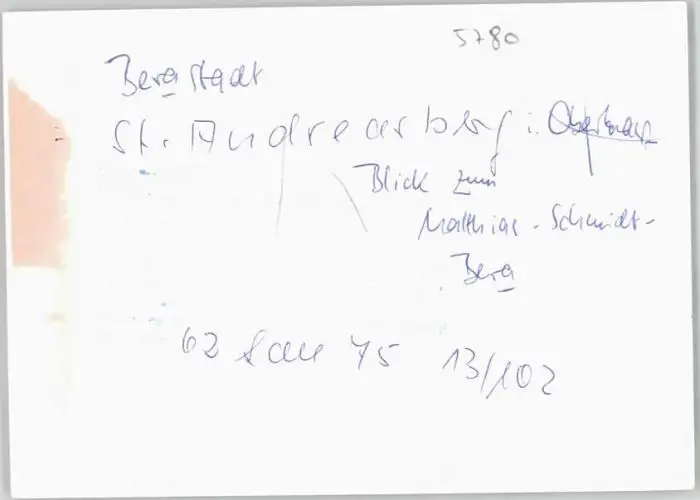 5780
Bergstadt
St. Andreasberg i. Oberharz
Blick zum
Matthias-Schmidt-
Berg
62 75 13/102